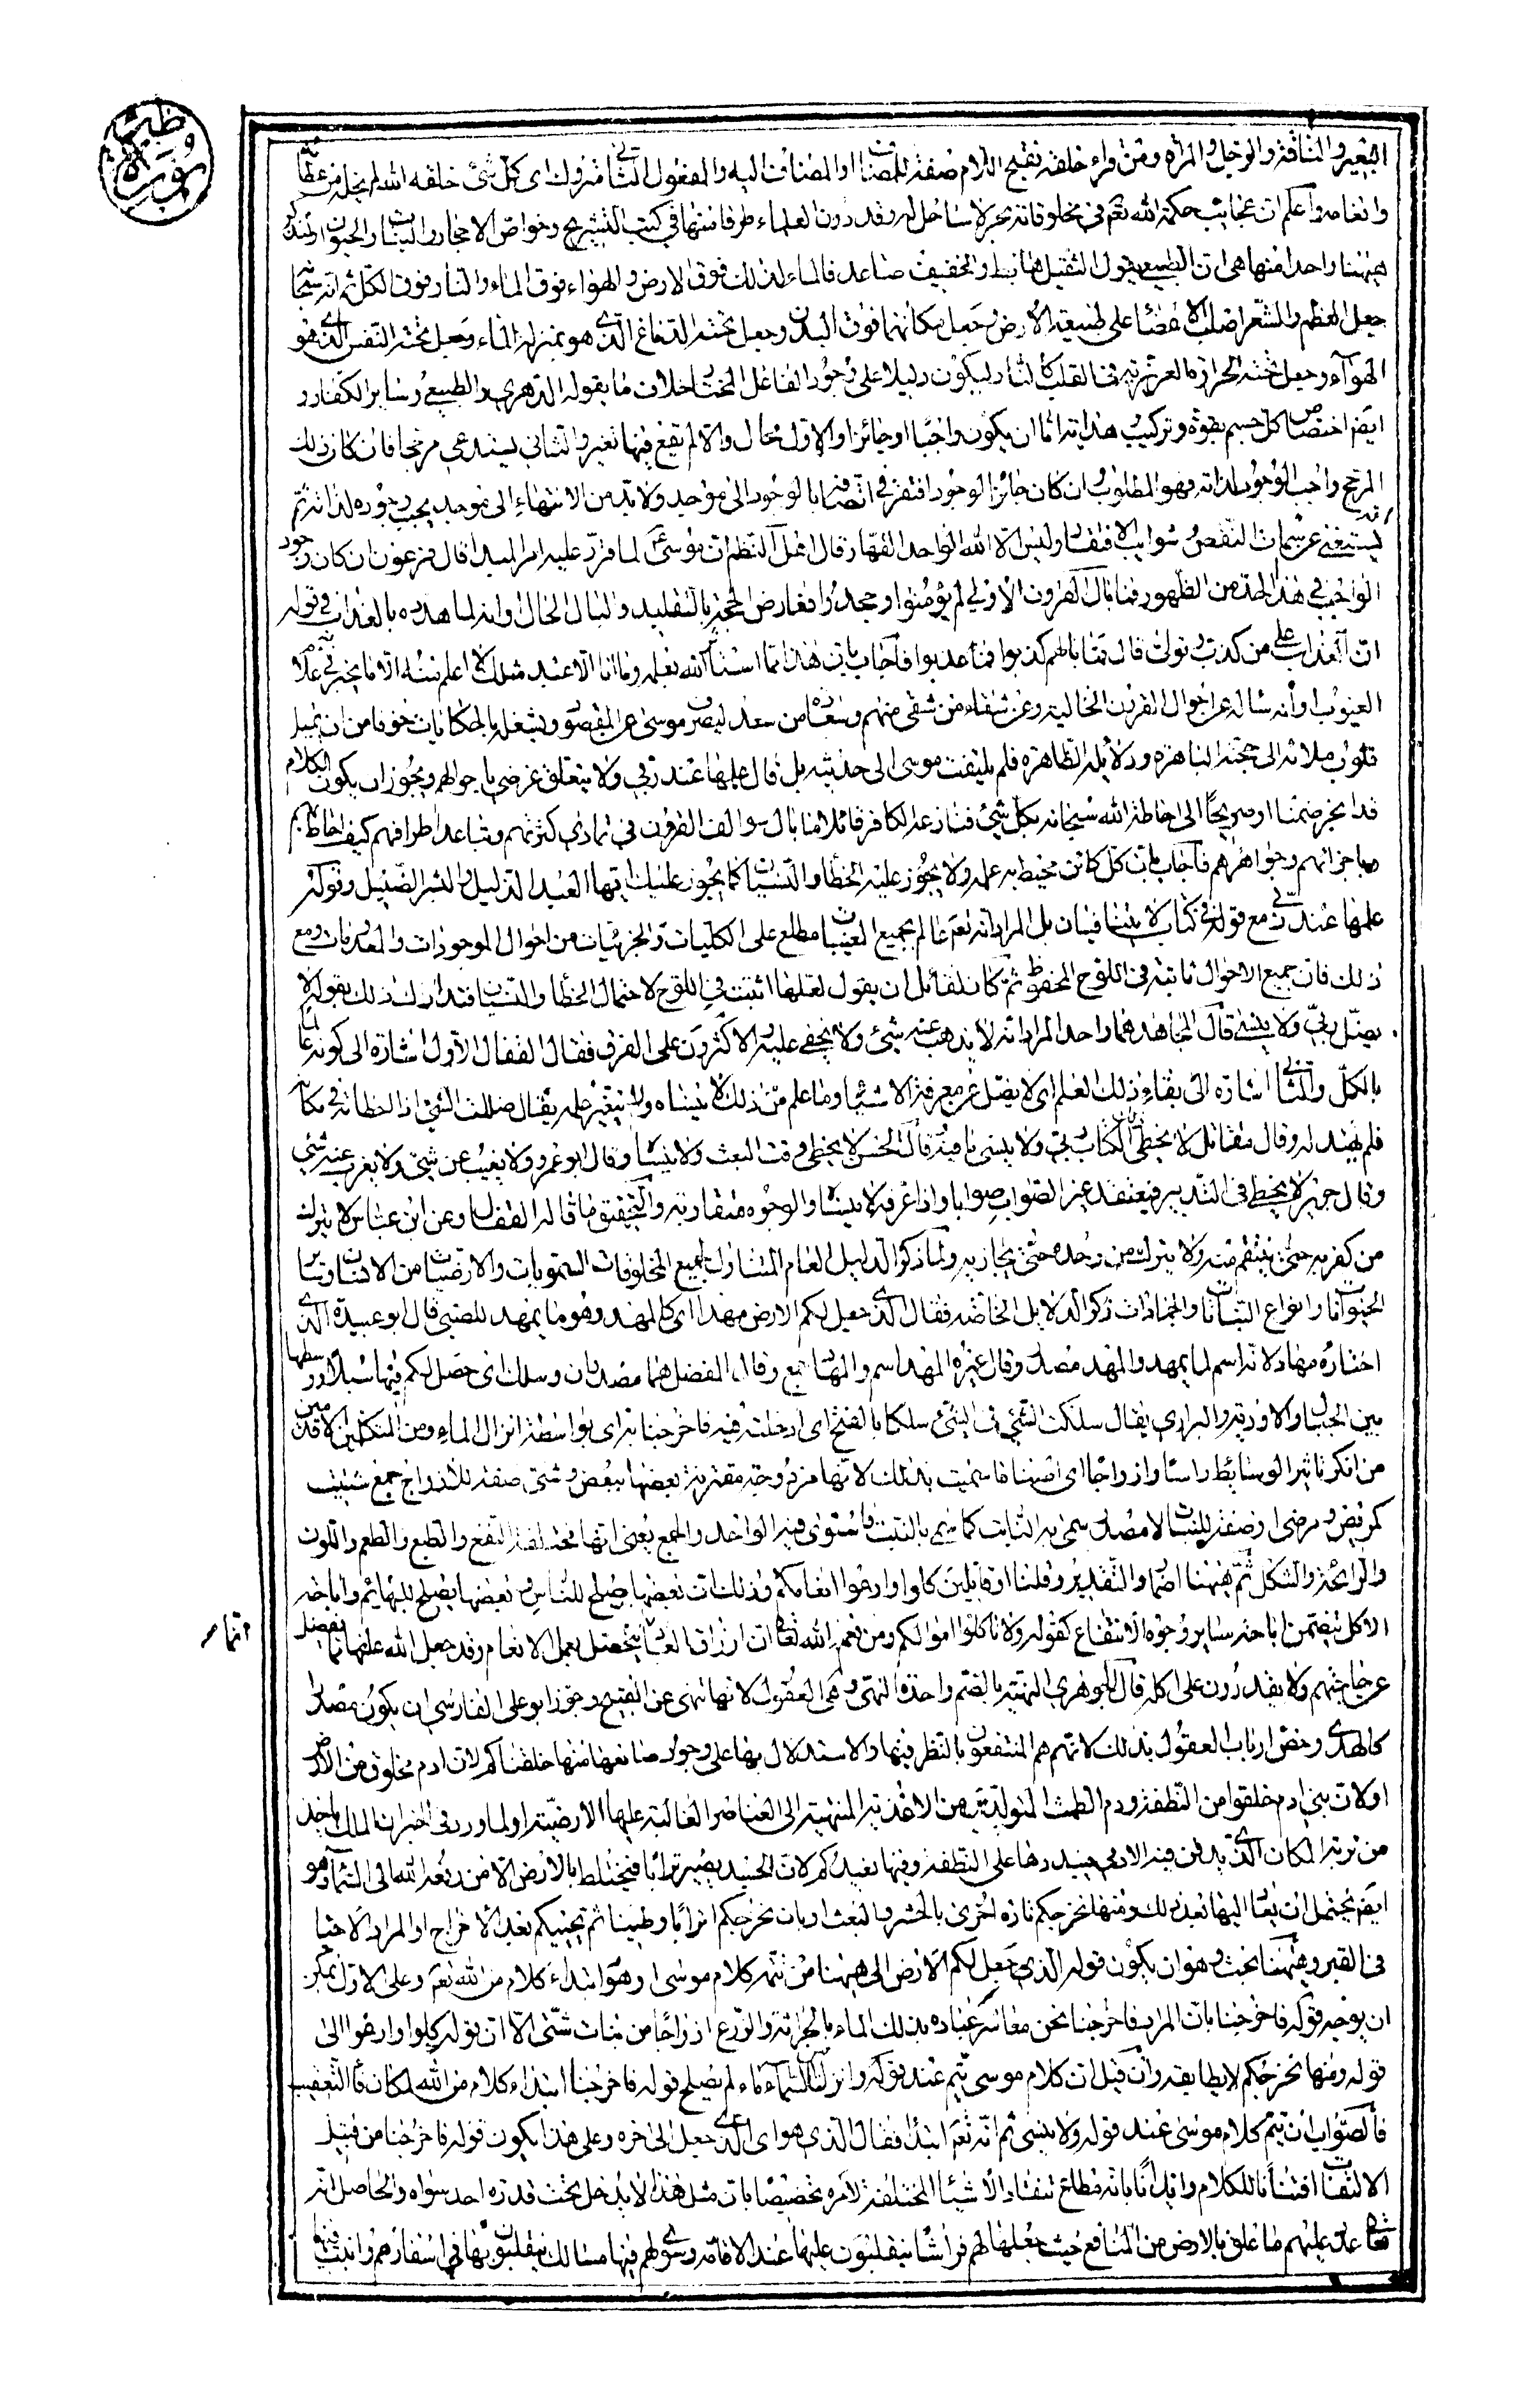 البعير والناقة والرجل والمرأة ومن قرأ خلقه بفتح اللام صفة للمضاف أو المضاف اليه والمفعول الثاني متروك اى كل شئ خلقه الله لم يخله من عطائه
وانعامه واعلم ان عجائب حكمة الله تعم فى مخلوقاته بحر لا ساحل له وقد دون العلماء طرفا منها فى كتب التشريح وخواص الاحجار والنبات والحيوان ولنذكر
ههنا واحدا منها هى ان الطبيعى يقول الثقيل هابط والخفيف صاعد فالماء لذلك فوق الارض والهواء فوق الماء والنار فوق الكل ثم انه سبحانه
جعل العظم والشعر اصلب الاعضاء على طبيعة الارض وجعل مكانهما فوق البدن وجعل تحته الدماغ الذى هو بمنزلة الماء وجعل تحته النفس الذى هو
الهواء وجعل تحته الحرارة الغريزية فى القلب كالنار ليكون دليلا على وجود الفاعل المختار خلاف ما يقوله الدهرى والطبيعى وسائر الكفار و
ايضا اختصاص كل جسم بقوة وتركيب وهداية اما ان يكون واجبا او جائزا والاول محال والا لم يقع فيها تغير والثانى يستدعى مرجحا فان كان ذلك
المرجح واجب الوجود لذاته فهو المطلوب وان كان جائز الوجود افتقر فى اتصافه بالوجود الى موجد ولا بد من الانتهاء الى موجد يجب وجوده لذاته ثم
يستغنى عن سمات النقص وشوائب الافتقار وليس الا الله الواحد القهار قال اهل النظم ان موسى لما قرر عليه امر المبدا قال فرعون ان كان وجود
الواجب فى هذا الحد من الظهور فما بال القرون الاولى لم يؤمنوا وجحدوا فعارض الحجة بالتقليد والبال الحال وانه لما هدده بالعذاب فى قوله
ان العذاب على من كذب وتولى قال فما بالهم كذبوا فما عذبوا فاجاب بان هذا مما استأثر الله بعلمه وما انا الا عبد مثلك لا اعلم منه الا ما يخبرنى علام
الغيوب او انه سأله عن احوال القرون الخالية وعن شقاء من شقى منهم وسعادة من سعد ليصرف موسى عن المقصود ويشغله بالحكايات خوفا من ان يميل
قلوب ملائه الى حجته الباهرة ودلائله الظاهرة فلم يلتفت موسى الى حديثه بل قال علمها عند ربى ولا يتعلق غرضى باحوالهم ويجوز ان يكون الكلام
قد انجر ضمنا او صريحا الى احاطة الله سبحانه بكل شئ فنازعه الكافر قائلا ما بال سوالف القرون فى تمادى كثرتهم وتباعد اطرافهم كيف احاط بهم
وباجزائهم وجواهرهم فاجاب بان كل كائن محيط به علمه ولا يجوز عليه الخطأ والنسيان كما يجوز عليك ايها العبد الذليل والبشر الضئيل وقوله
علمها عند ربى مع قوله فى كتاب لا يتنافيان بل المراد انه تعم عالم بجميع المغيبات مطلع على الكليات والجزئيات من احوال الموجودات والمعدومات ومع
ذلك فان جميع الاحوال ثابتة فى اللوح المحفوظ ثم كان لقائل ان يقول لعلها اثبتت فى اللوح لاحتمال الخطأ والنسيان فتدارك ذلك بقوله لا
يضل ربى ولا ينسى قال مجاهد هما واحد المراد انه لا يذهب عنه شئ ولا يخفى عليه والاكثرون على الفرق فقال القفال الاول اشارة الى كونه عالما
بالكل والثانى اشارة الى بقاء ذلك العلم اى لا يضل عن معرفة الاشياء وما علم من ذلك لا ينساه ولا يتغير علمه يقال ضللت الشئ اذا اخطأته فى مكانه
فلم تهتد له وقال مقاتل لا يخطئ ذلك الكتاب ربى ولا ينسى ما فيه وقال الحسن لا يخطئ وقت البعث ولا ينساه وقال ابو عمرو لا يغيب عن شئ ولا يعزب عنه شئ
وقال ابن جرير لا يخطئ فى التدبير فيعتقد غير الصواب صوابا واذا عرفه لا ينساه والوجوه متقاربة والتحقيق ما قاله القفال وعن ابن عباس لا يترك
من كفر به حتى ينتقم منه ولا يترك من وحده حتى يجازيه ولما ذكر الدليل العام المتناول لجميع المخلوقات السمويات والارضيات من الانسان وسائر
الحيوانات وانواع النباتات والجمادات ذكر الدلائل الخاصة فقال الذى جعل لكم الارض مهدا اى كالمهد وهو ما يمهد للصبى قال ابو عبيدة الذى
اختاره مهادا لانه اسم لما يمهد والمهد مصدر وقال غيره المهد اسم والمهاد جمع وقال المفضل هما مصدران وسلك اى حصل لكم فيها سبلا ووسطها
بين الجبال والاودية والبرارى يقال سلكت الشئ فى الشئ سلكا بالفتح اى ادخلته فيه فاخرجنا به اى بواسطة انزال الماء ومن المتكلمين الاقدمين
من انكر تاثير الوسائط راسا وازواجا اى اصنافا سميت بذلك لانها مزدوجة مقترنة بعضها ببعض وشتى صفة للازواج جمع شتيت
كمريض ومرضى او صفة للنبات لانه مصدر سمى به النابت كما سمى بالنبت فاستوى فيه الواحد والجمع يعنى انها مختلفة النفع والطبع والطعم واللون
والرائحة والشكل ثم ههنا اضمار والتقدير وقلنا او قائلين كلوا وارعوا انعامكم وذلك ان بعضها يصلح للناس وبعضها يصلح للبهائم واباحة
الاكل يتضمن اباحة سائر وجوه الانتفاع كقوله ولا تاكلوا اموالكم ومن نعم الله تعالى ان ارزاق العباد يتحصل بعمل الانعام وقد جعل الله علفها مما يفضل
عن حاجتهم ولا يقدرون على اكله قال الجوهرى النهية بالضم واحدة النهى وهى العقول لانها تنهى عن القبيح وجوز ابو على الفارسى ان يكون مصدرا
كالهدى وخص ارباب العقول بذلك لانهم هم المنتفعون بالنظر فيها والاستدلال بها على وجود صانعها منها خلقناكم لان ادم مخلوق من الارض
او لان بنى ادم خلقوا من النطفة ودم الطمث المتولدين من الاغذية المنتهية الى العناصر الغالبة عليها الارضية او لما ورد فى الخبر ان الملك ياخذ
من تربة المكان الذى يدفن فيه الادمى فيذرها على النطفة وفيها نعيدكم لان الجسد يصير ترابا فيختلط بالارض الا من رفعه الله الى السماء وهو
ايضا يحتمل ان يعاد اليها بعد ذلك ومنها نخرجكم تارة اخرى بالحشر والبعث او بان نخرجكم ترابا وطينا ثم نحييكم بعد الاخراج او المراد الاحياء
فى القبر وههنا بحث وهو ان يكون قوله الذى جعل لكم الارض الى ههنا من تتمة كلام موسى او هو ابتداء كلام من الله تعم وعلى الاول يمكن
ان يوجه قوله فاخرجنا بان المراد فاخرجنا نحن معاشر عباده بذلك الماء بالحراثة والزرع ازواجا من نبات شتى الا ان قوله كلوا وارعوا الى
قوله ومنها نخرجكم لا يطابقه وان قيل ان كلام موسى يتم عند قوله وانزل من السماء ماء لم يصلح قوله فاخرجنا ابتداء كلام من الله لمكان فاء التعقيب
فالصواب ان يتم كلام موسى عند قوله ولا ينسى ثم انه تعم ابتدأ فقال الذى هو اى الذى جعل الى اخره وعلى هذا يكون قوله فاخرجنا من قبيل
الالتفات افتنانا للكلام وايذانا بانه مطاع تنقاد الاشياء المختلفة لامره تخصيصا بان مثل هذا لا يدخل تحت قدرة احد سواه والحاصل انه
تعالى عد عليهم ما علق بالارض من المنافع حيث جعلها لهم فراشا يتقلبون عليها عند الاقامة وسوى لهم فيها مسالك يتقلبون بها فى اسفارهم وانبت فيها